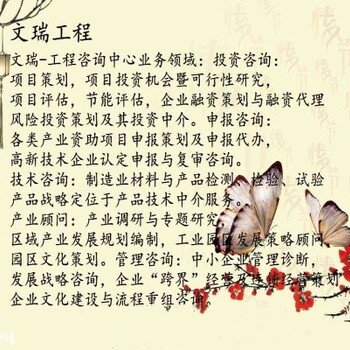 文瑞工程
文瑞-工程咨询中心业务领域：投资咨询：
项目策划，项目投资机会暨可行性研究，
项目评估，节能评估，企业融资策划与融资代理
风险投资策划及其投资中介。申报咨询：
各类产业资助项目申报策划及申报代办，
高新技术企业认定申报与复审咨询。
技术咨询：制造业材料与产品检测、检验、试验
产品战略定位于产品技术中介服务。
产业顾问：产业调研与专题研究，
区域产业发展规划编制，工业园区发展策略顾问
园区文化策划。管理咨询：中小企业管理诊断，
发展战略咨询，企业“跨界”经营及连锁经营策划
企业文化建设与流程重组咨询。